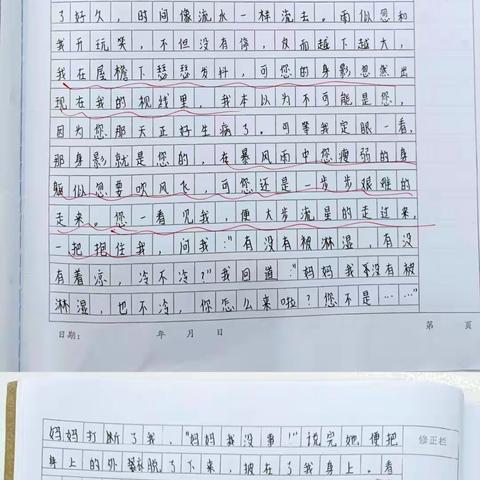 了好久，时间像流水一样流去。雨似忽和
我开玩笑，不但没有停，反而越下越大，
我在屋檐下瑟瑟发抖，可您的身影忽然出
现在我的视线里，我本以为不可能是您，
因为您那天正好生病了。可等我定眼一看，
那身影就是您的，在暴风雨中您瘦弱的身
躯似忽要吹风飞，可您还是一步步艰难的
走来。您一看见我，便大步流星的走过来，
一把抱住我，问我："有没有被淋湿，有没
有着凉，冷不冷？"我回道："妈妈我没有被
淋湿，也不冷，你怎么来啦？您不是……"
日期： 年 月 日 第 页
妈妈打断了我，"妈妈我没事！"说完她便把 修正栏
身上的外套脱了下来，披在了我身上。看